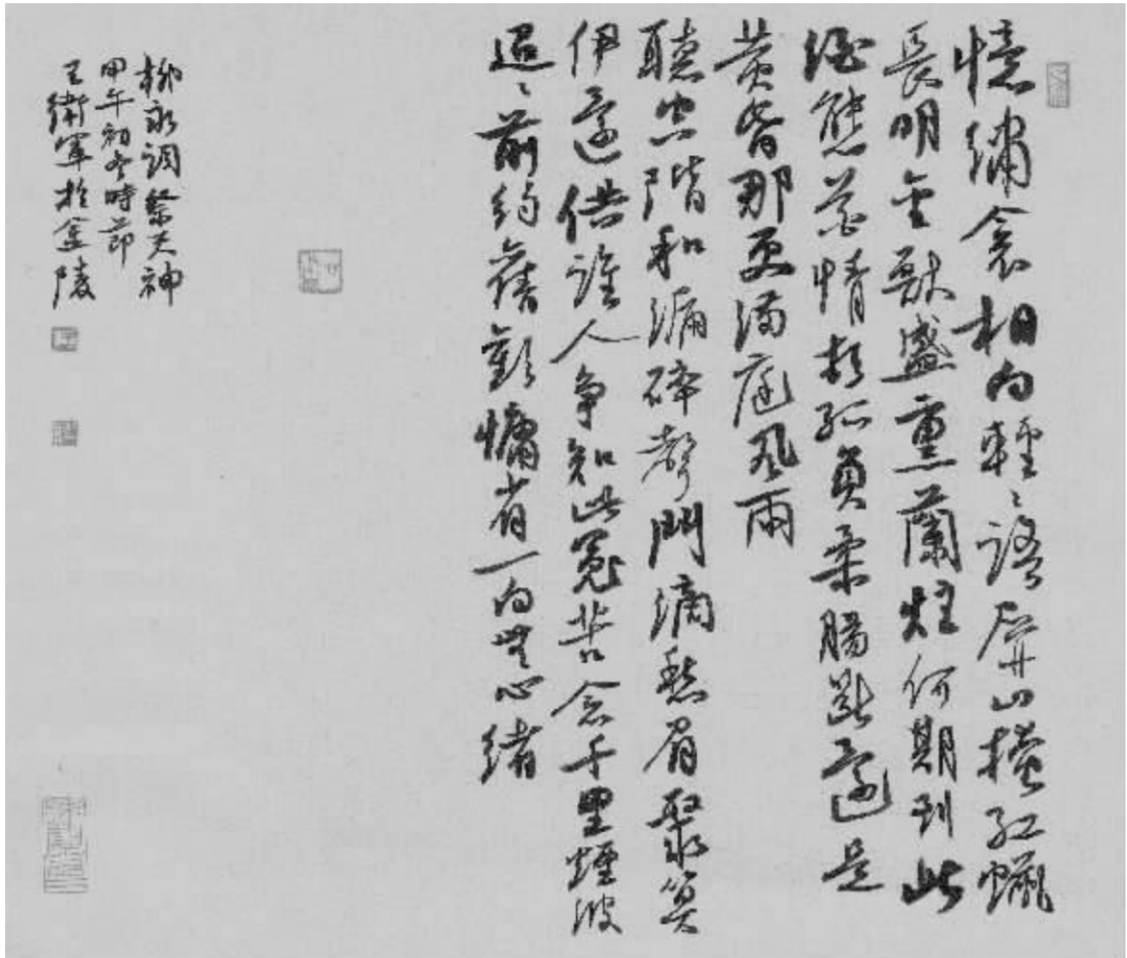 憶繡衾相向輕〻語屏山掩紅蠟
長明金獸盛熏蘭炷何期到此
酒態花情頓孤負柔腸斷還是
黃昏那更滿庭風雨
聽空階和漏碎聲鬥滴愁眉聚算
伊還供誰人爭知此冤苦念千里煙波
迢〻前約舊歡慵省一向無心緒
柳永詞祭天神
甲午初冬時節
王衛軍於金陵